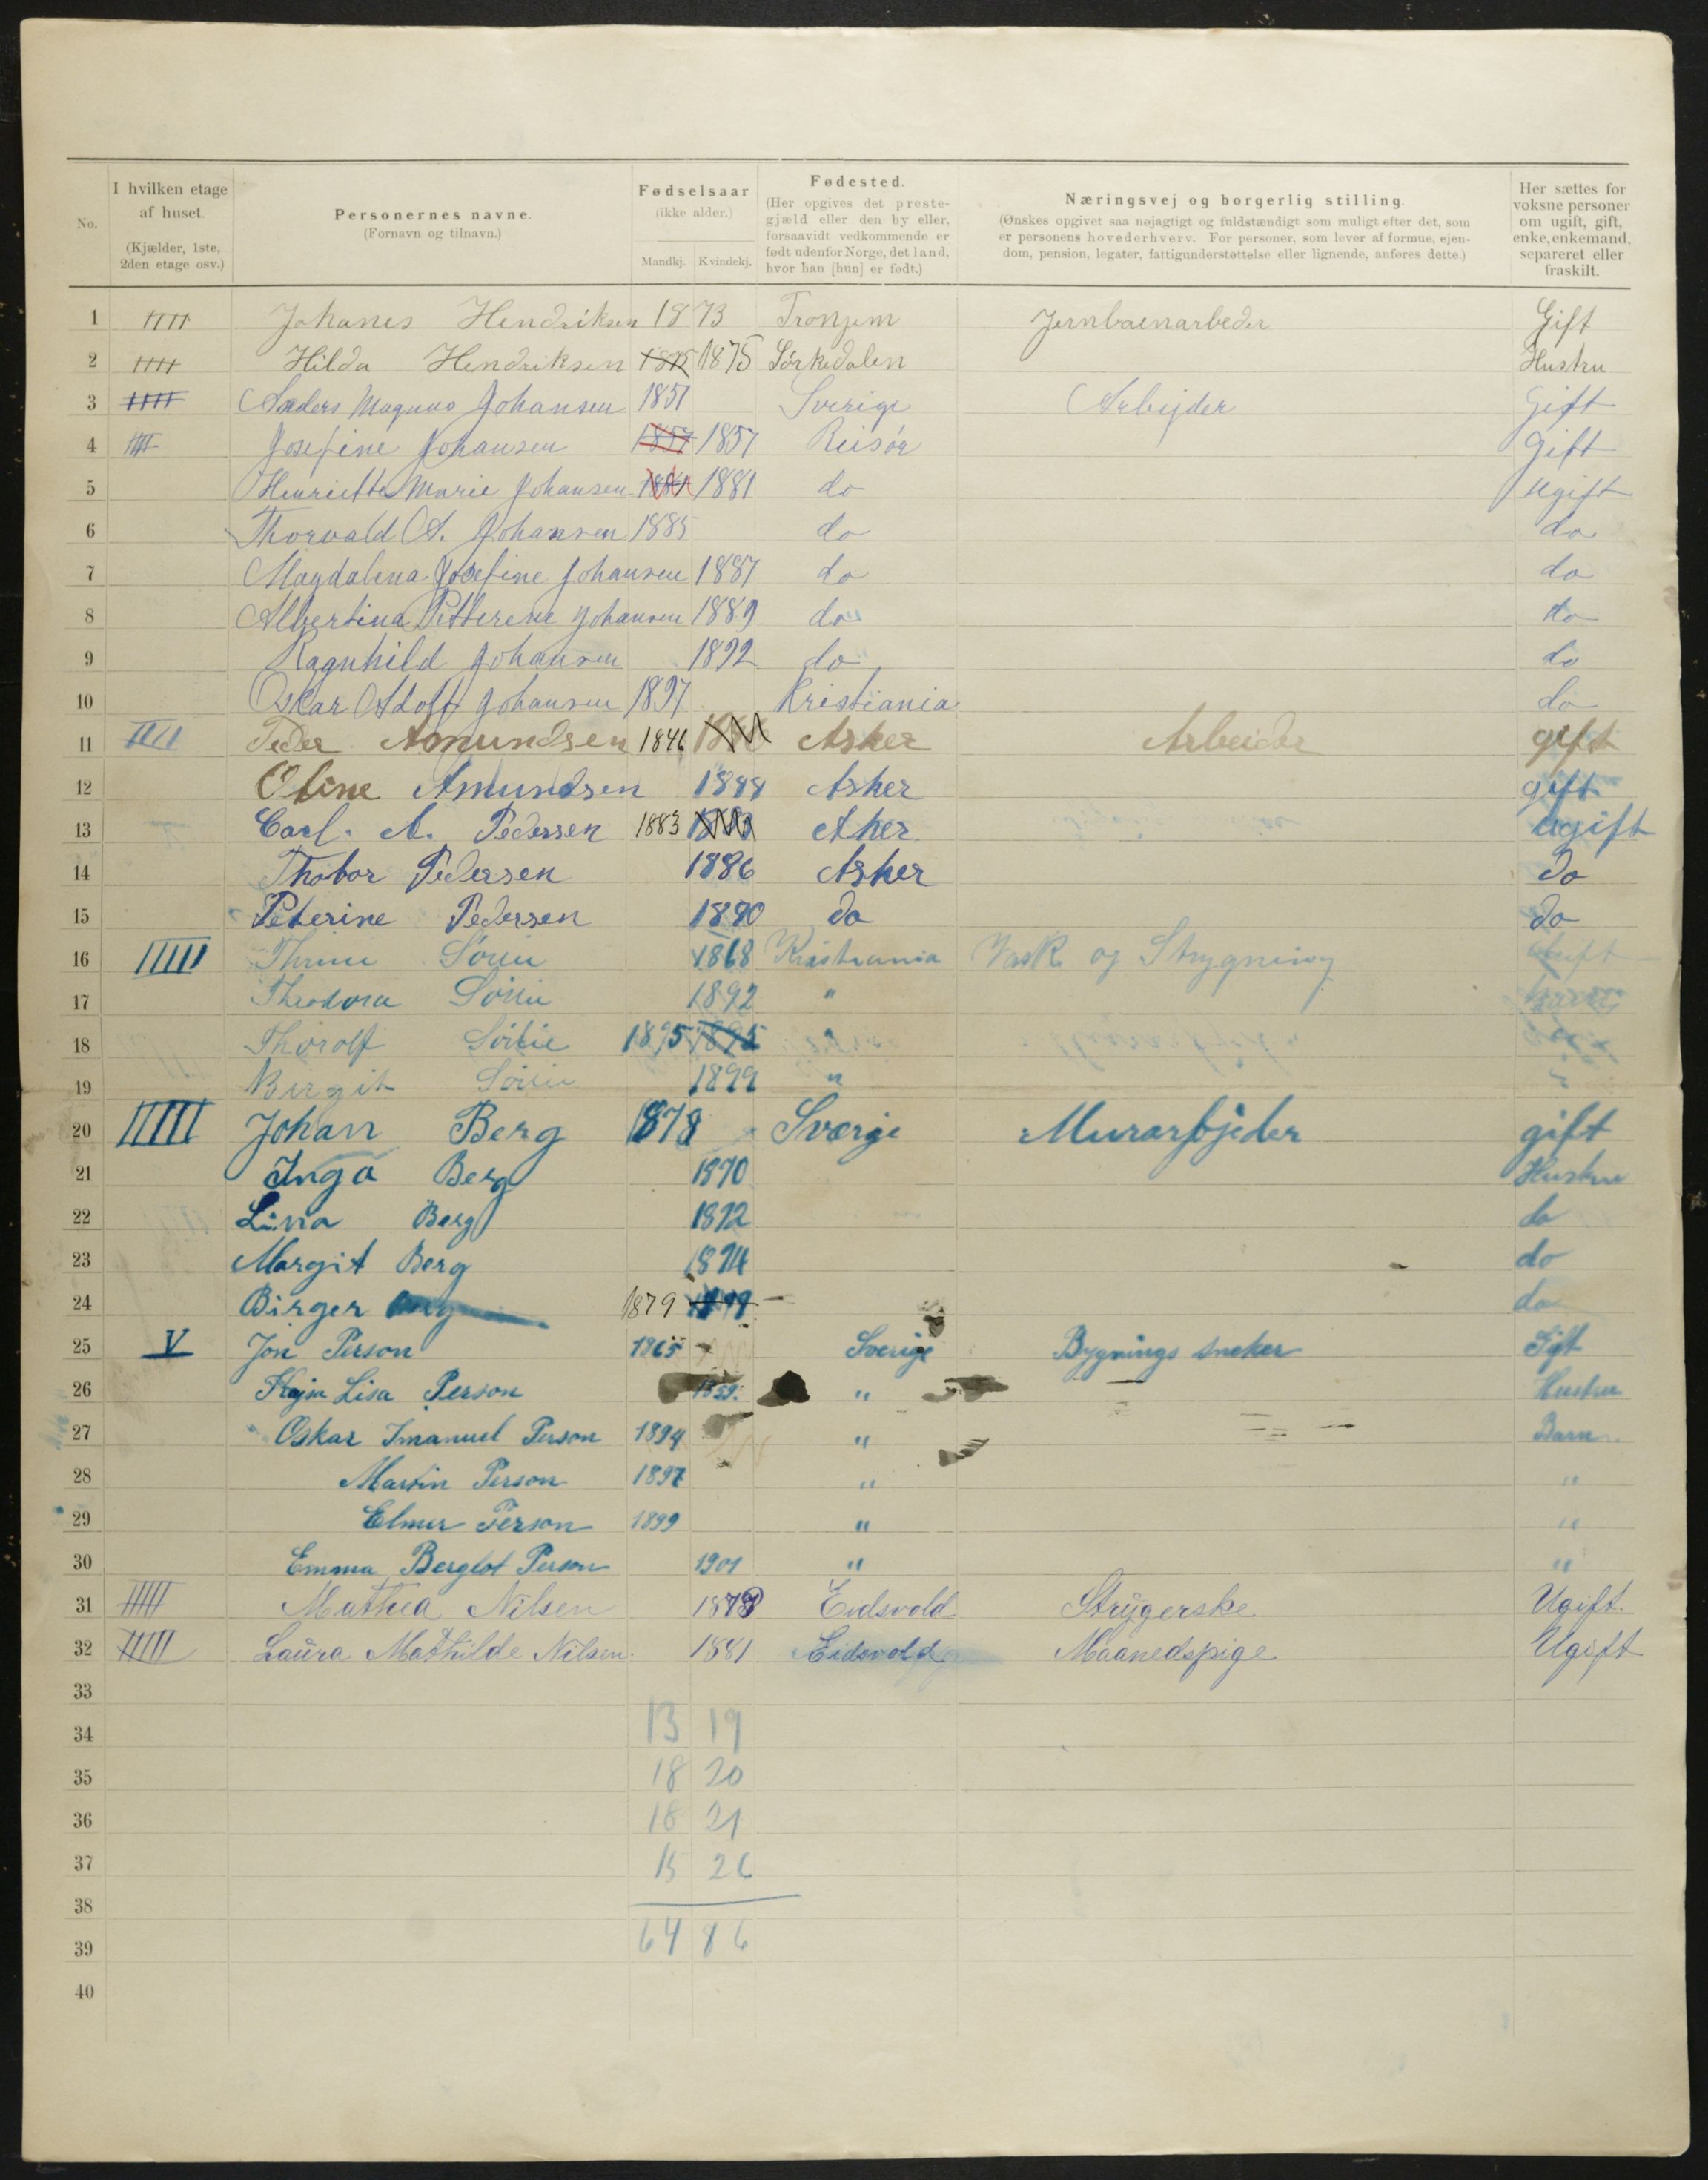 No.
I hvilken etage af huset.
(Kjælder, 1ste, 2den etage osv.)
Personernes navne.
(Fornavn og tilnavn.)
Fødselsaar
(ikke alder.)
Mandkj. Kvindekj.
Fødested.
(Her opgives det prestegjæld eller den by eller, forsaavidt vedkommende er født udenfor Norge, det land, hvor han [hun] er født.)
Næringsvej og borgerlig stilling.
(Ønskes opgivet saa nøjagtigt og fuldstændigt som muligt efter det, som er personens hovederhverv. For personer, som lever af formue, ejendom, pension, legater, fattigunderstøttelse eller lignende, anføres dette.)
Her sættes for voksne personer om ugift, gift, enke, enkemand, separeret eller fraskilt.
1 Johanes Hendriksen 1873 Tronjem Jernbaenarbeder Gift
2 Hilda Hendriksen 1875 Sørkedalen Hustru
3 Anders Magnus Johansen 1851 Sverige Arbejder Gift
4 Josefine Johansen 1857 1857 Reisör Gift
5 Henriette Marie Johansen 1881 1881 do Ugift
6 Thorvald A. Johansen 1885 do do
7 Magdalena Josefine Johansen 1887 do do
8 Albertina Pitterine Johansen 1889 do do
9 Ragnhild Johansen 1892 do do
10 Oskar Adolf Johansen 1897 Kristiania do
11 Peder Amundsen 1846 Asker Arbeider gift
12 Oline Amundsen 1848 Asker gift
13 Carl. A. Pedersen 1883 Aker ugift
14 Thobor Pedersen 1886 Asker do
15 Peterine Pedersen 1890 do do
16 1868 Kristiania Vask og Strygning
17 Theodora 1892 "
18 Thorolf 1895 1895 "
19 Birgit 1899 "
20 Johan Berg 1878 Sverige Murarbjeder gift
21 Inga Berg 1870 Hustru
22 Lina Berg 1892 do
23 Margit Berg 1894 do
24 Birger Berg 1879 do
25 V Jon Person 1865 Sverige Bygnings sneker Gift
26 Kajsa Lisa Person " Hustru
27 Oskar Imanuel Person 1894 " Barn
28 Martin Person 1897 " "
29 Elmer Person 1899 " "
30 Emma Berglot Person 1901 " "
31 Mathea Nilsen 1878 Eidsvold Strygerske Ugift.
32 Laura Mathilde Nilsen. 1881 Eidsvold Maanedspige Ugift
33
34 13 19
35 18 20
36 18 21
37 15 26
38
39 64 86
40